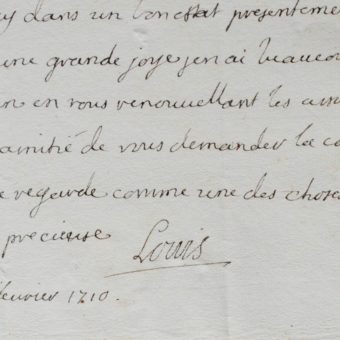 y dans un bon estat presenteme
une grande joye jen ai beaucou
n en vous renouvellant les a
amitié de vous demander la co
e regarde comme une des chose
precieuse
Louis
fevrier 1710.